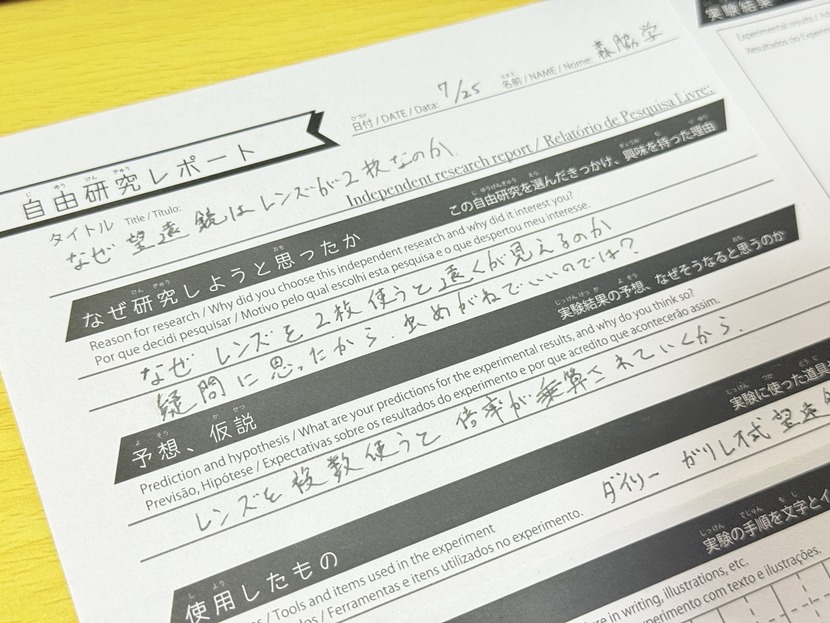 実験結果
Experimental results /
Resultados do Experim
日付 / DATE / Data: 7/25 名前 / NAME / Nome: 森脇 学
自由研究レポート
Independent research report / Relatório de Pesquisa Livre:
タイトル Title / Titulo:
なぜ望遠鏡はレンズが2枚なのか
なぜ研究しようと思ったか この自由研究を選んだきっかけ、興味を持った理由
Reason for research / Why did you choose this independent research and why did it interest you?
Por que decidi pesquisar / Motivo pelo qual escolhi esta pesquisa e o que despertou meu interesse.
なぜレンズを2枚使うと遠くが見えるのか
疑問に思ったから.虫めがねでいいのでは?
予想、仮説 実験結果の予想、なぜそうなると思うのか
Prediction and hypothesis / What are your predictions for the experimental results, and why do you think so?
Previsão, Hipótese / Expectativas sobre os resultados do experimento e por que acredito que acontecerão assim.
レンズを複数使うと倍率が乗算されていくから.
使用したもの 実験に使った道具
/ Tools and items used in the experiment
/ Ferramentas e itens utilizados no experimento.
ダイソー ガリレオ式望遠
実験の手順を文字とイ
in writing, illustrations, etc.
experimento com texto e ilustrações.